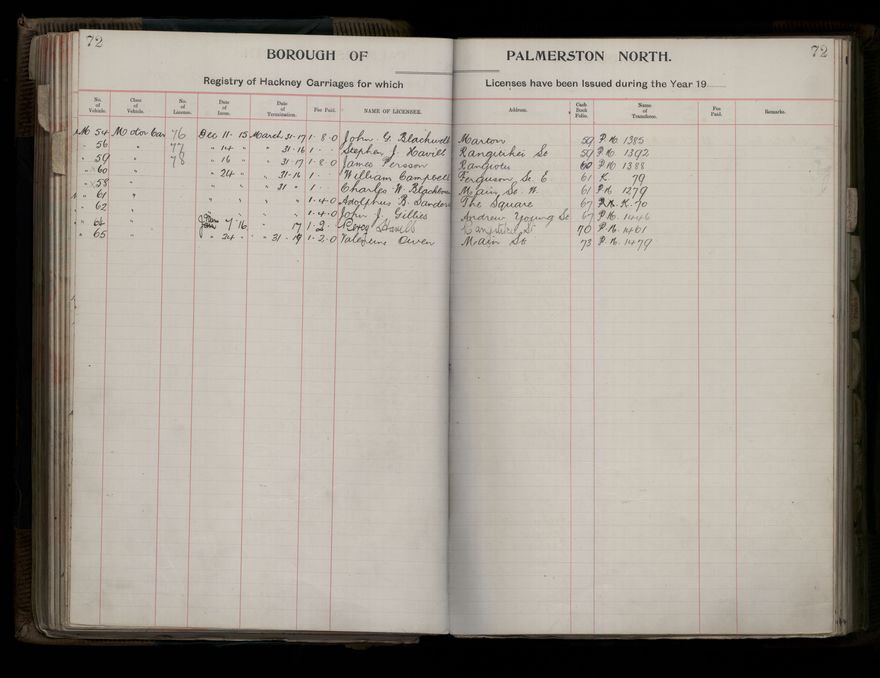 72
BOROUGH OF PALMERSTON NORTH.
72
Registry of Hackney Carriages for which Licenses have been Issued during the Year 19
No. of Vehicle. Class of Vehicle. No. of License. Date of Issue. Date of Termination. Fee Paid. NAME OF LICENSEE. Address. Cash Book Folio. Name of Transferee. Fee Paid. Remarks.
M 54 Motor Car 76 Dec 11 15 March 31-17 1-8-0 John G. Blackwell Marton 59 P.N. 1385
" 56 " 77 " 14 " " 31-16 1 Stephen J. Rangitikei St 59 P.N. 1392
" 59 " 78 " 16 " " 31-17 1-8-0 James Persson Rangiotu 60 P.N. 1388
" 60 " " 24 " " 31-16 1 William Campbell Ferguson St. E 61 K 79
" 58 " " 31 " 1 Charles W. Main St. W. 61 P.N. 1279
" 61 " 1-4-0 Adolphus B. Sanders The Square 67 K. 70
" 62 " 1-4-0 John J. Gillies Andrew Young St 67 P.N. 1446
" 64 " Jan 7 16 " 17 1-2 Percy 70 P.N. 1461
" 65 " " 24 " " 31-17 1-2-0 Valentine Owen Main St. 73 P.N. 1479